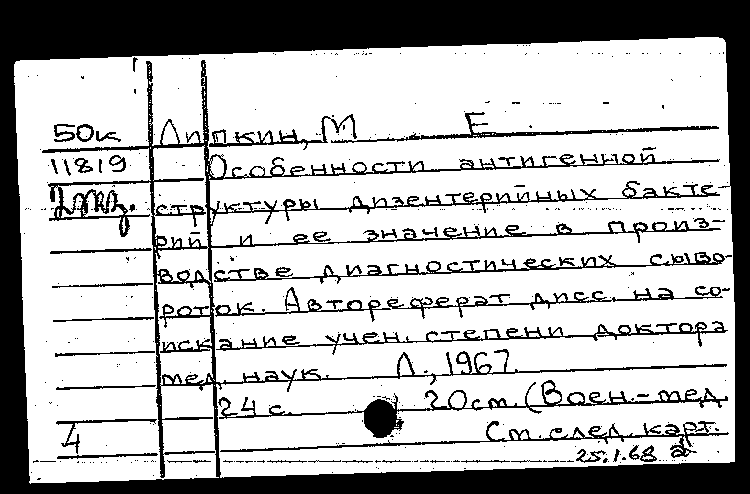 50к Липкин, М Е
11819 Особенности антигенной
2 экз. структуры дизентерийных бакте-
рий и ее значение в произ-
водстве диагностических сыво-
роток. Автореферат дисс. на со-
искание учен. степени доктора
мед. наук. Л., 1967.
24 с. 20 см. (Воен.-мед.
4 См. след. карт.
25.1.68